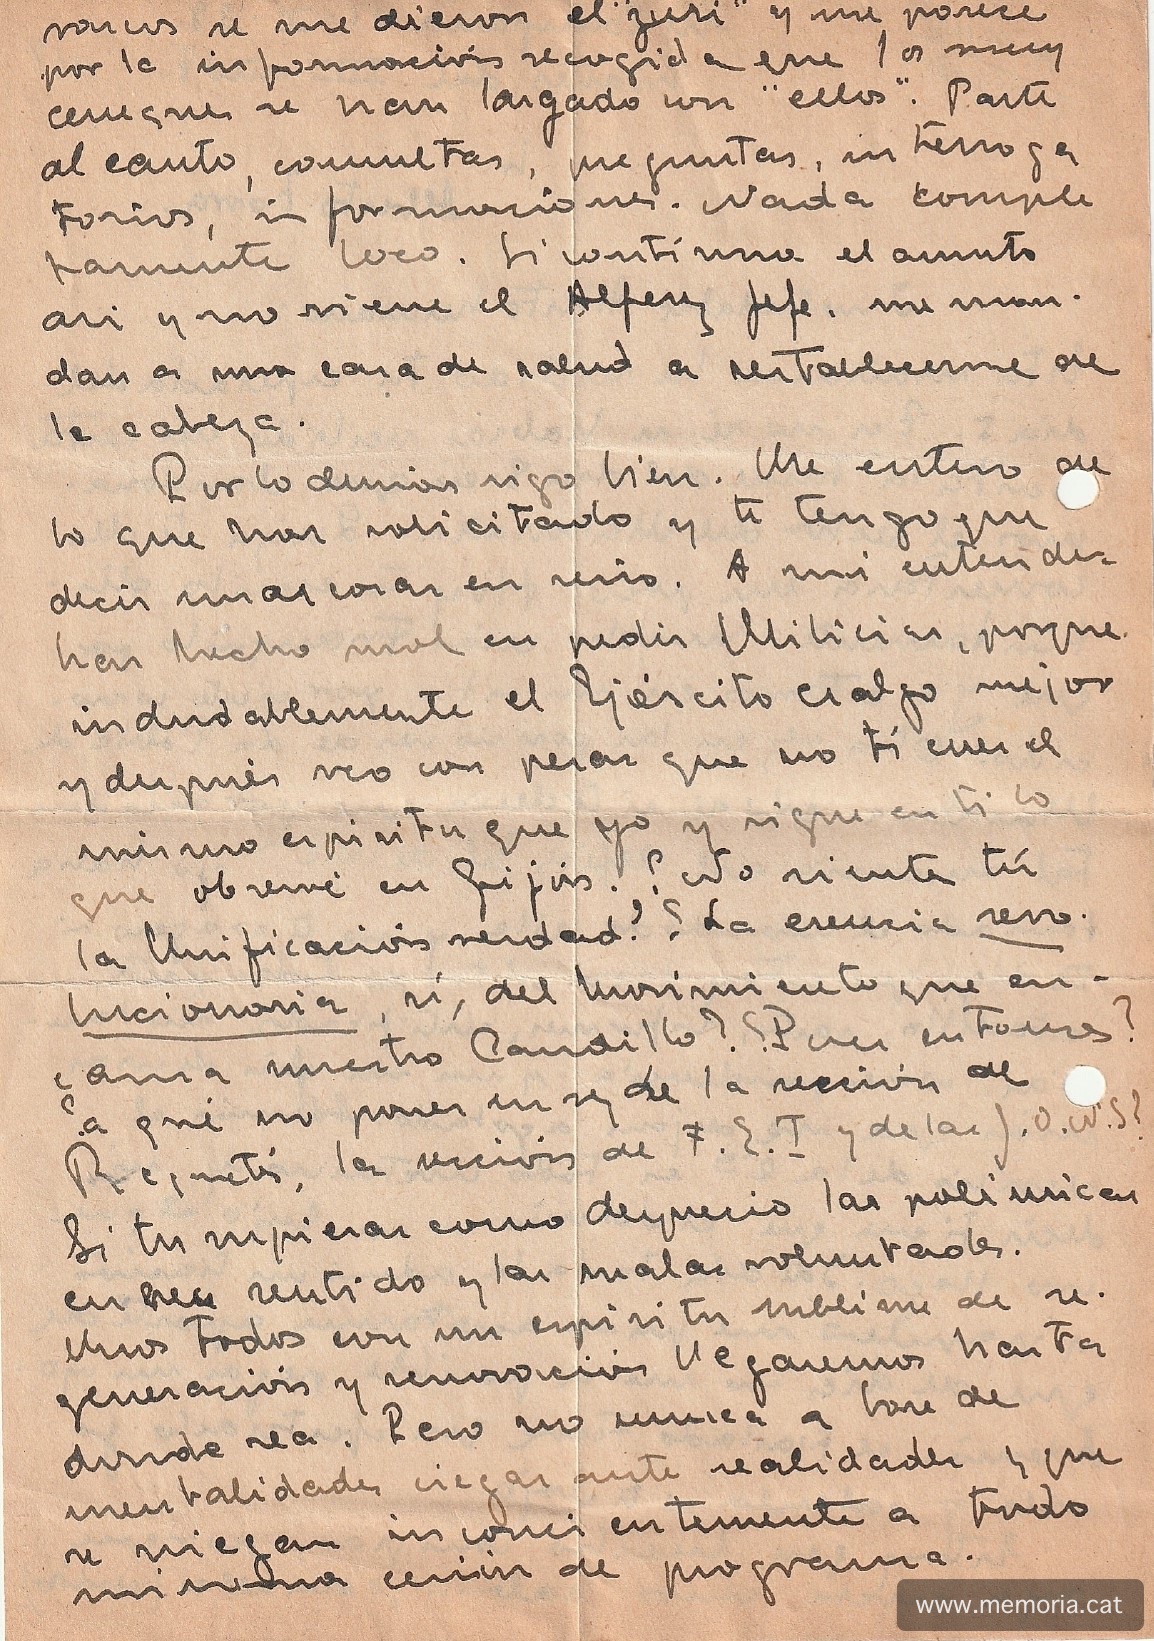 se me dieron el "zuri" y me parece
por la información recogida que los muy
se han largado con "ellos". Parte
al canto, consultas, preguntas, interroga
torios, informaciones. Nada comple
tamente loco. Si continua el asunto
asi y no viene el Alferez Jefe. me man-
dan a una casa de salud a restablecerme de
la cabeza.
Por lo demás sigo bien. Me entero de
lo que has solicitado y te tengo que
decir unas cosas en serio. A mi entender
has hecho mal en pedir Milicias, porque
indudablemente el Ejército es algo mejor
y después veo con pesar que no tienes el
mismo espiritu que yo y sigue en ti lo
que observé en Gijón. ¿No sientes tú
la Unificación verdad? ¿La esencia revo-
lucionaria, sí, del Movimiento que en-
carna nuestro Caudillo? ¿Pues entonces?
¿a qué no pones en vez de la sección de
Requetés, la sección de F.E.T y de las J.O.N.S?
Si tu supieras como desprecio las polémicas
en ese sentido y las malas voluntades.
Unos todos con un espiritu sublime de re-
generación y renovación llegaremos hasta
donde sea. Pero no nunca a base de
mentalidades ciegas ante realidades y que
se niegan inconcientemente a todo
cesión de programa.
www.memoria.cat